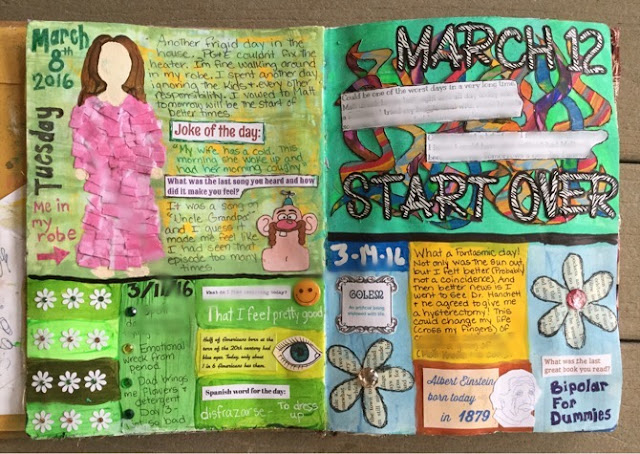 March
8th
2016
Tuesday
Me in
my
robe
Another frigid day in the
house. PG&E couldn't fix the
heater. I'm fine walking around
in my robe. I spent another day
ignoring the kids + every other
responsibility. I vowed to Matt
tomorrow will be the start of
better times.
Joke of the day:
"My wife has a cold. This
morning she woke up and
had her morning coughy"
What was the last song you heard and how
did it make you feel?
It was a song on
"Uncle Grandpa"
and I guess it
made me feel like
I had seen that
episode too many
times.
3/11/16
Emotional
wreck from
period
Dad brings
me flowers +
detergent
Day 3
so bad
I that I feel pretty good
Half of Americans born at the
turn of the 20th century had
blue eyes. Today, only about
1 in 6 Americans has them.
Spanish word for the day:
disfrazarse - To dress
up
MARCH 12
Could be one of the worst days in a very long time.
START OVER
3-14-16
GOLEM
An artificial being
endowed with life.
What a fantasmic day!
Not only was the sun out,
but I felt better (Probably
not a coincidence). And
then better news is I
went to see Dr. Hanchett
+ he agreed to give me
a hysterectomy! This
could change my life
(cross my fingers) of
Albert Einstein
born today
in 1879
What was the last
great book you read?
Bipolar
For
Dummies